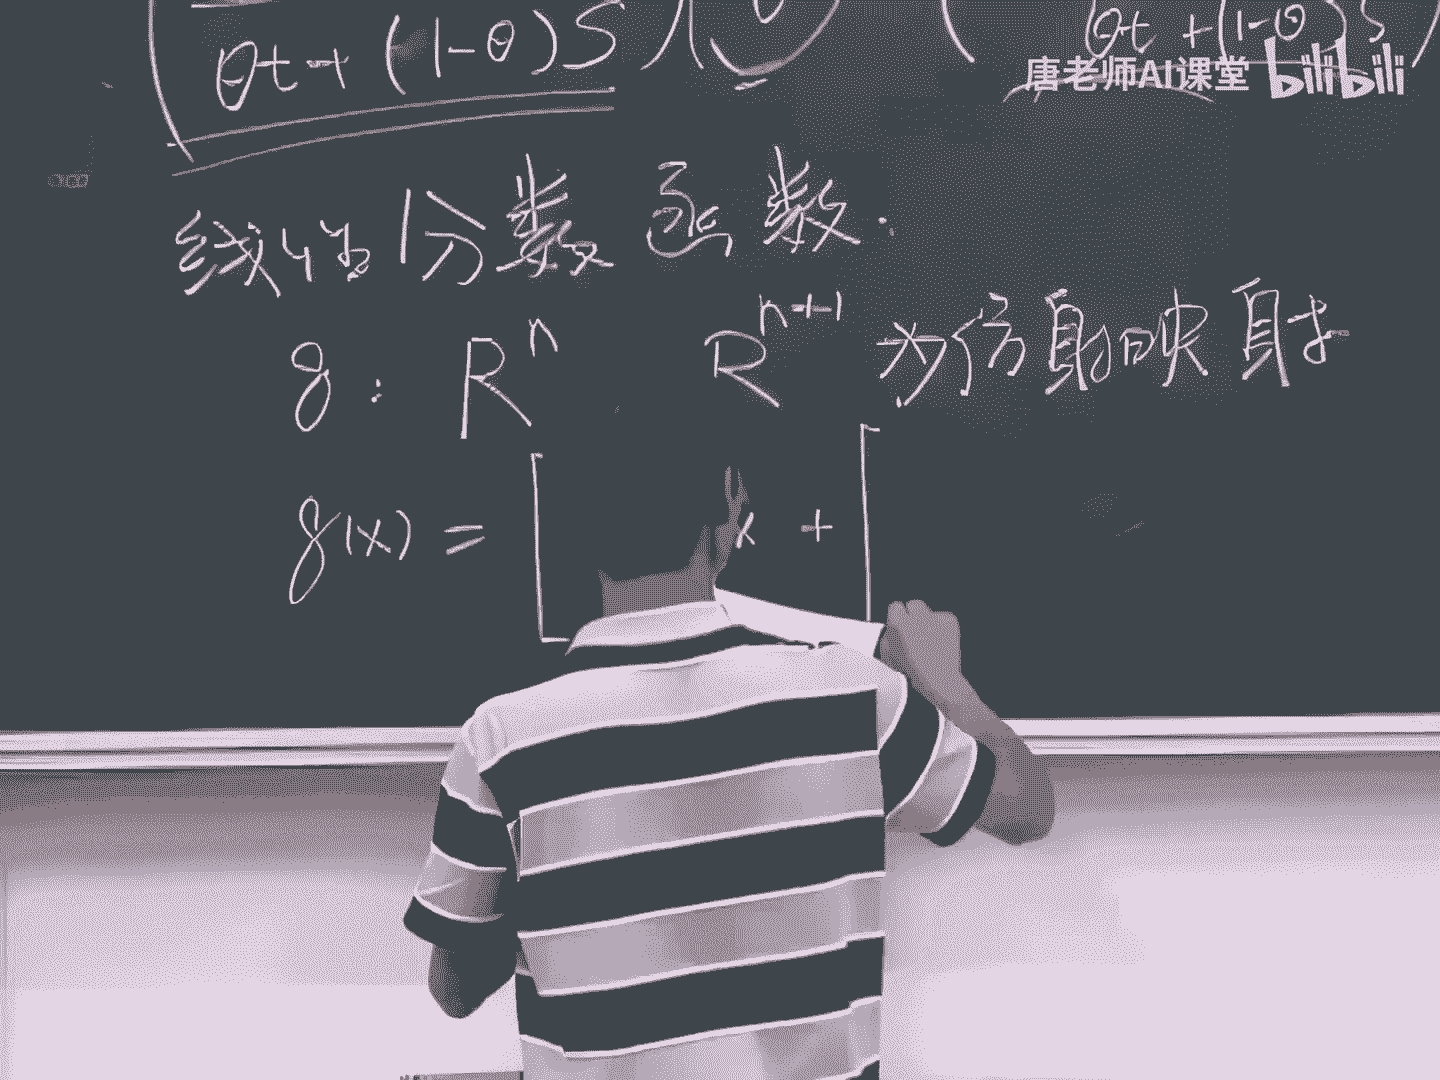 θt+(1-θ)S θt+(1-θ)S
唐老师AI课堂 bilibili
线性分数函数.
g: R^n R^{n+1} 为仿射映射
g(x) = [ x + [